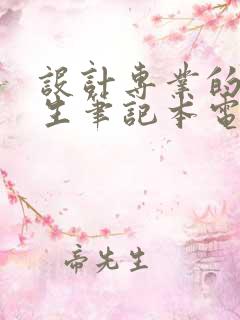 設計專業的
生筆記本電
帝先生